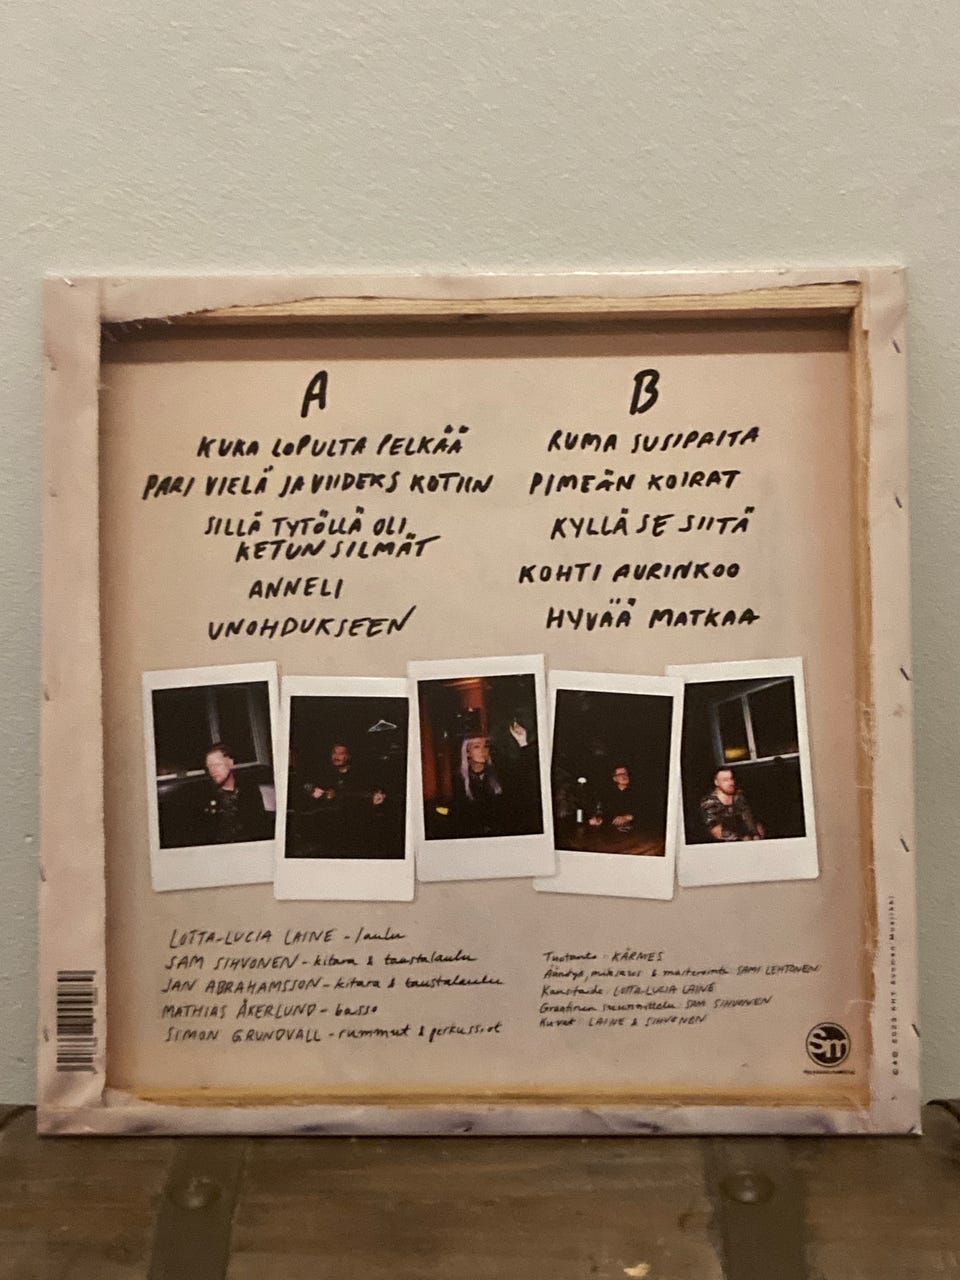 A
KUKA LOPULTA PELKÄÄ
PARI VIELÄ JA VIIDEKS KOTIIN
SILLÄ TYTÖLLÄ OLI
KETUN SILMÄT
ANNELI
UNOHDUKSEEN
B
RUMA SUSIPAITA
PIMEÄN KOIRAT
KYLLÄ SE SIITÄ
KOHTI AURINKOO
HYVÄÄ MATKAA
LOTTA-LUCIA LAINE - laulu
SAM SIHVONEN - kitara & taustalaulu
JAN ABRAHAMSSON - kitara & taustalaulu
MATHIAS ÅKERLUND - basso
SIMON GRUNDVALL - rummut & perkussiot
Tuotanto: KÄRMES
Äänitys, miksaus & masterointi: SAMI LEHTONEN
Kansitaide: LOTTA-LUCIA LAINE
Graafinen suunnittelu: SAM SIHVONEN
Kuvat: LAINE & SIHVONEN
Sm
©&℗ 2023 KHY Suomen Musiikki